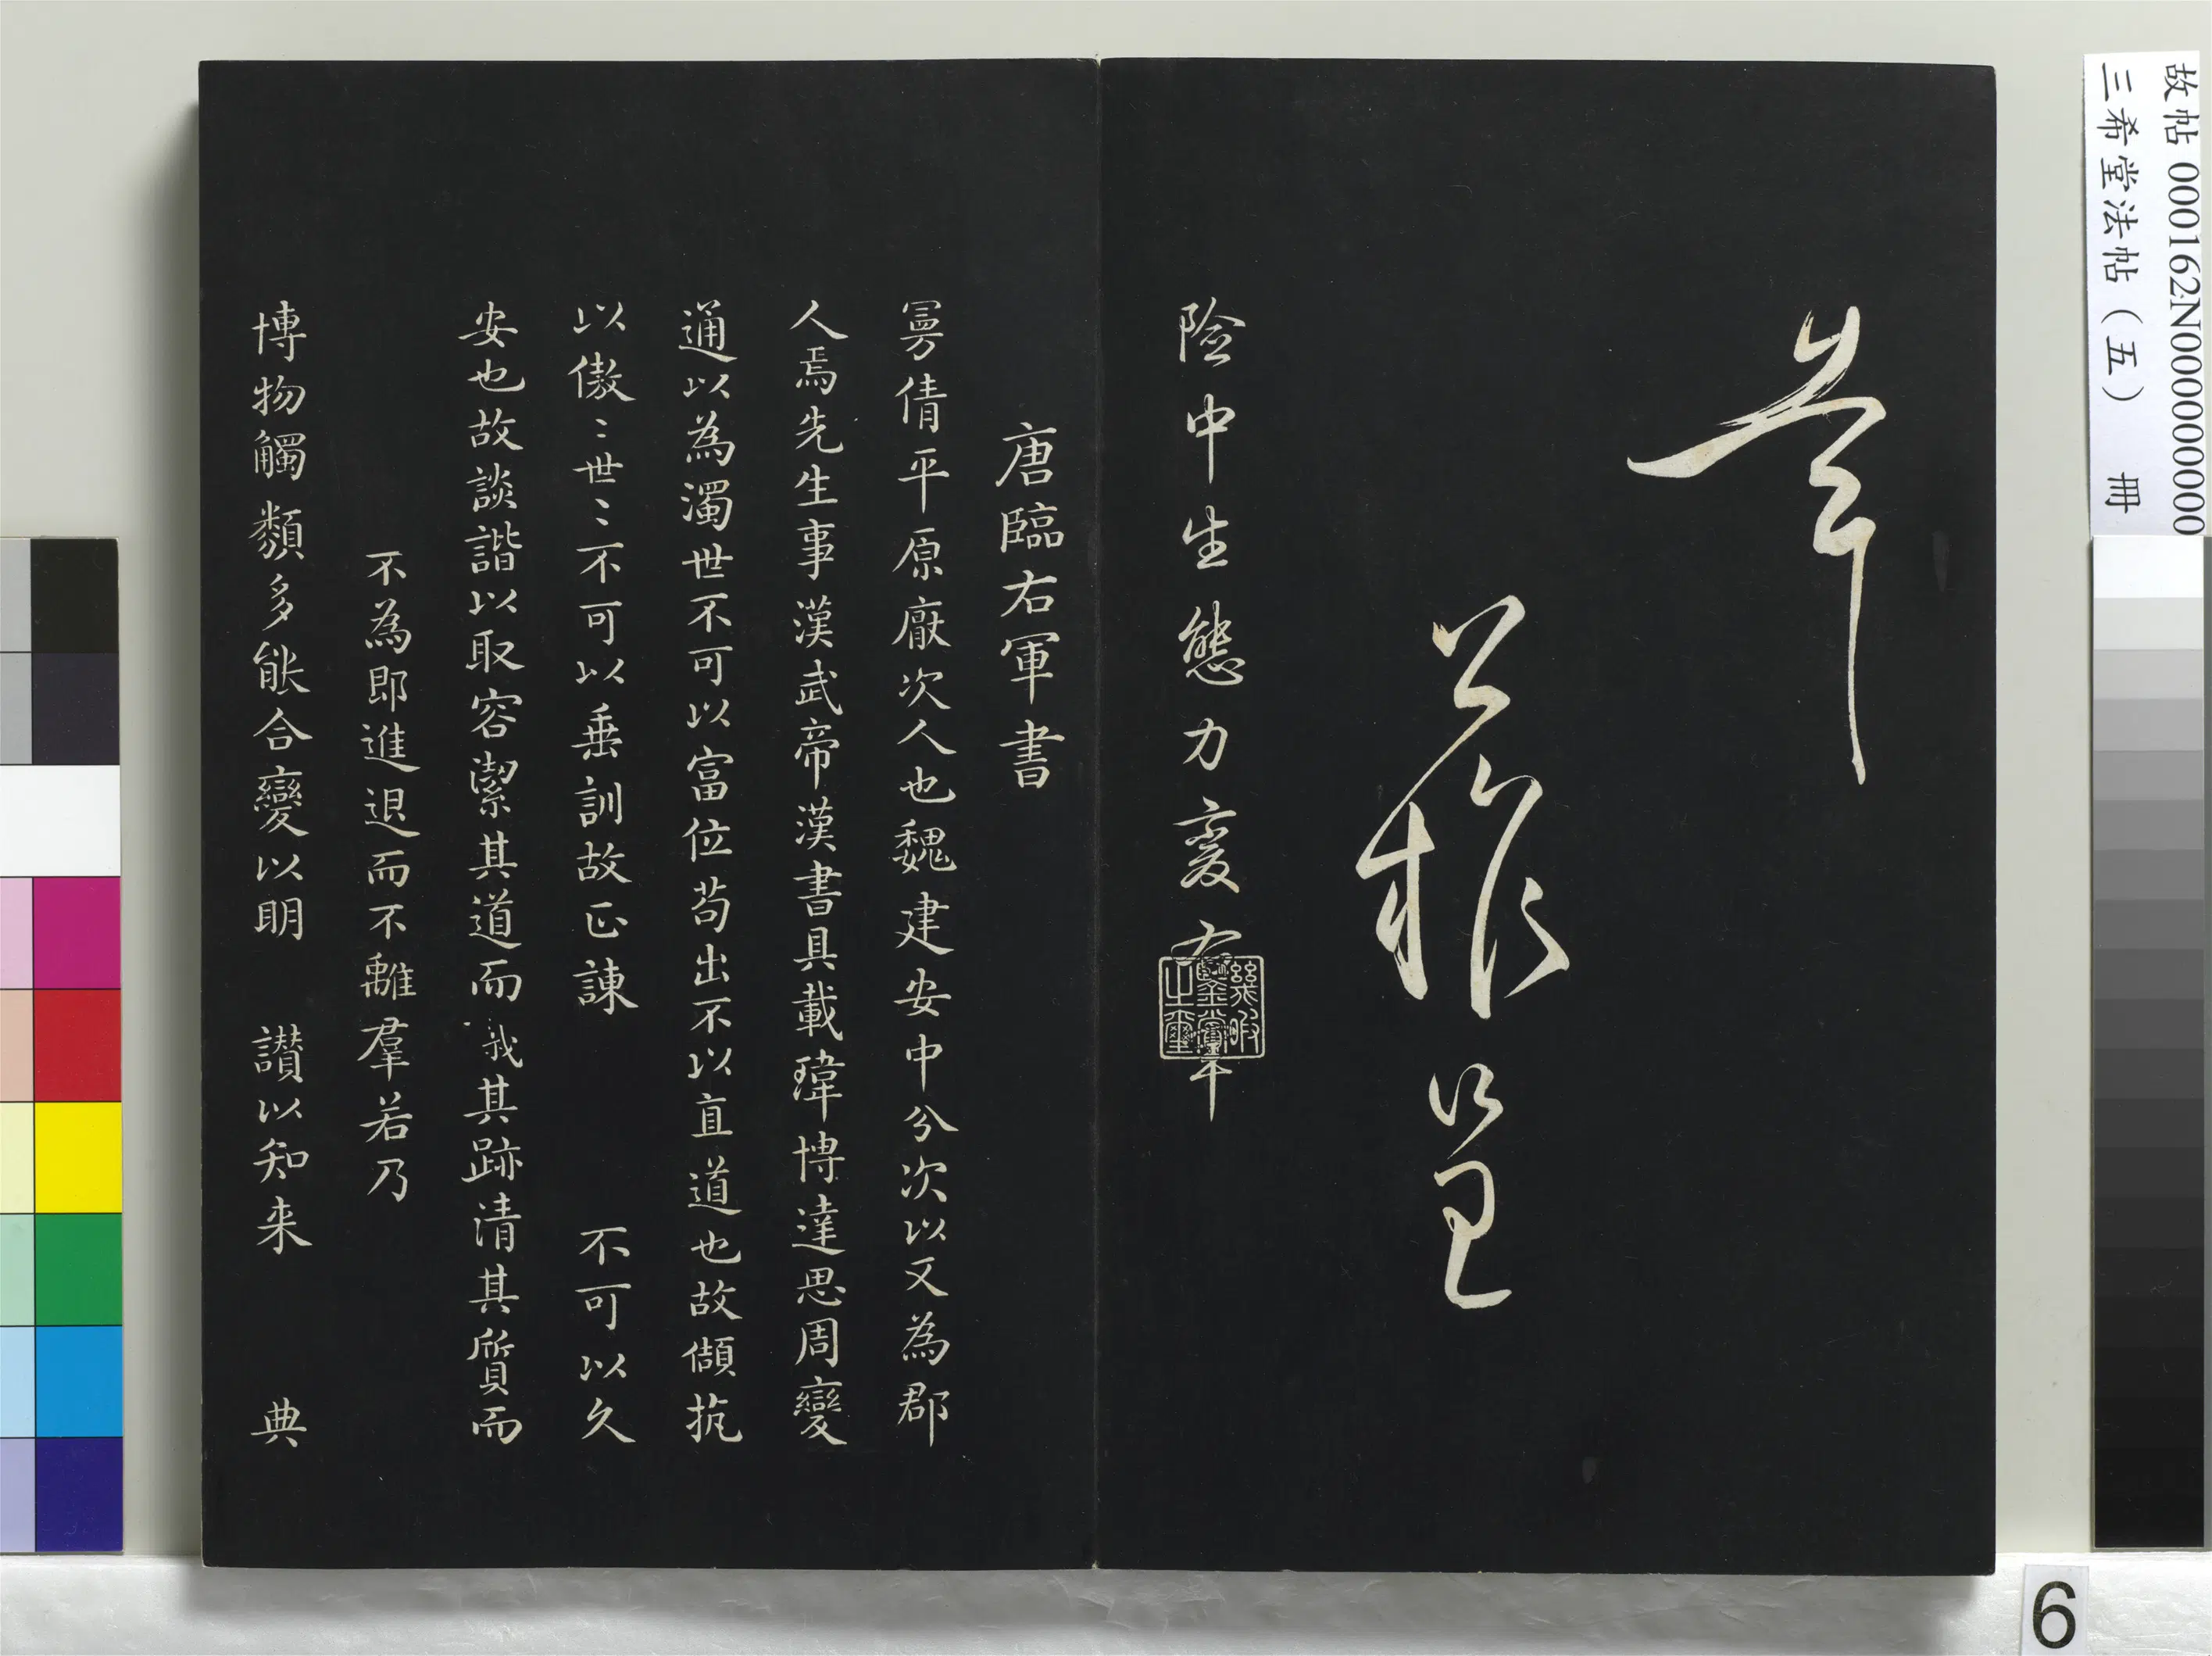 故帖 000162N000000000
三希堂法帖（五）　冊
幸
公權呈
險中生態力變右軍
幾暇鑒賞之璽
唐臨右軍書
曼倩平原厭次人也魏建安中分次以又為郡
人焉先生事漢武帝漢書具載瑋博達思周變
通以為濁世不可以富位苟出不以直道也故傾抗
以傲〻世〻不可以垂訓故正諫　不可以久
安也故談諧以取容潔其道而穢其跡清其質而
不為邪進退而不離羣若乃
博物觸類多能合變以明　讚以知来　典
6